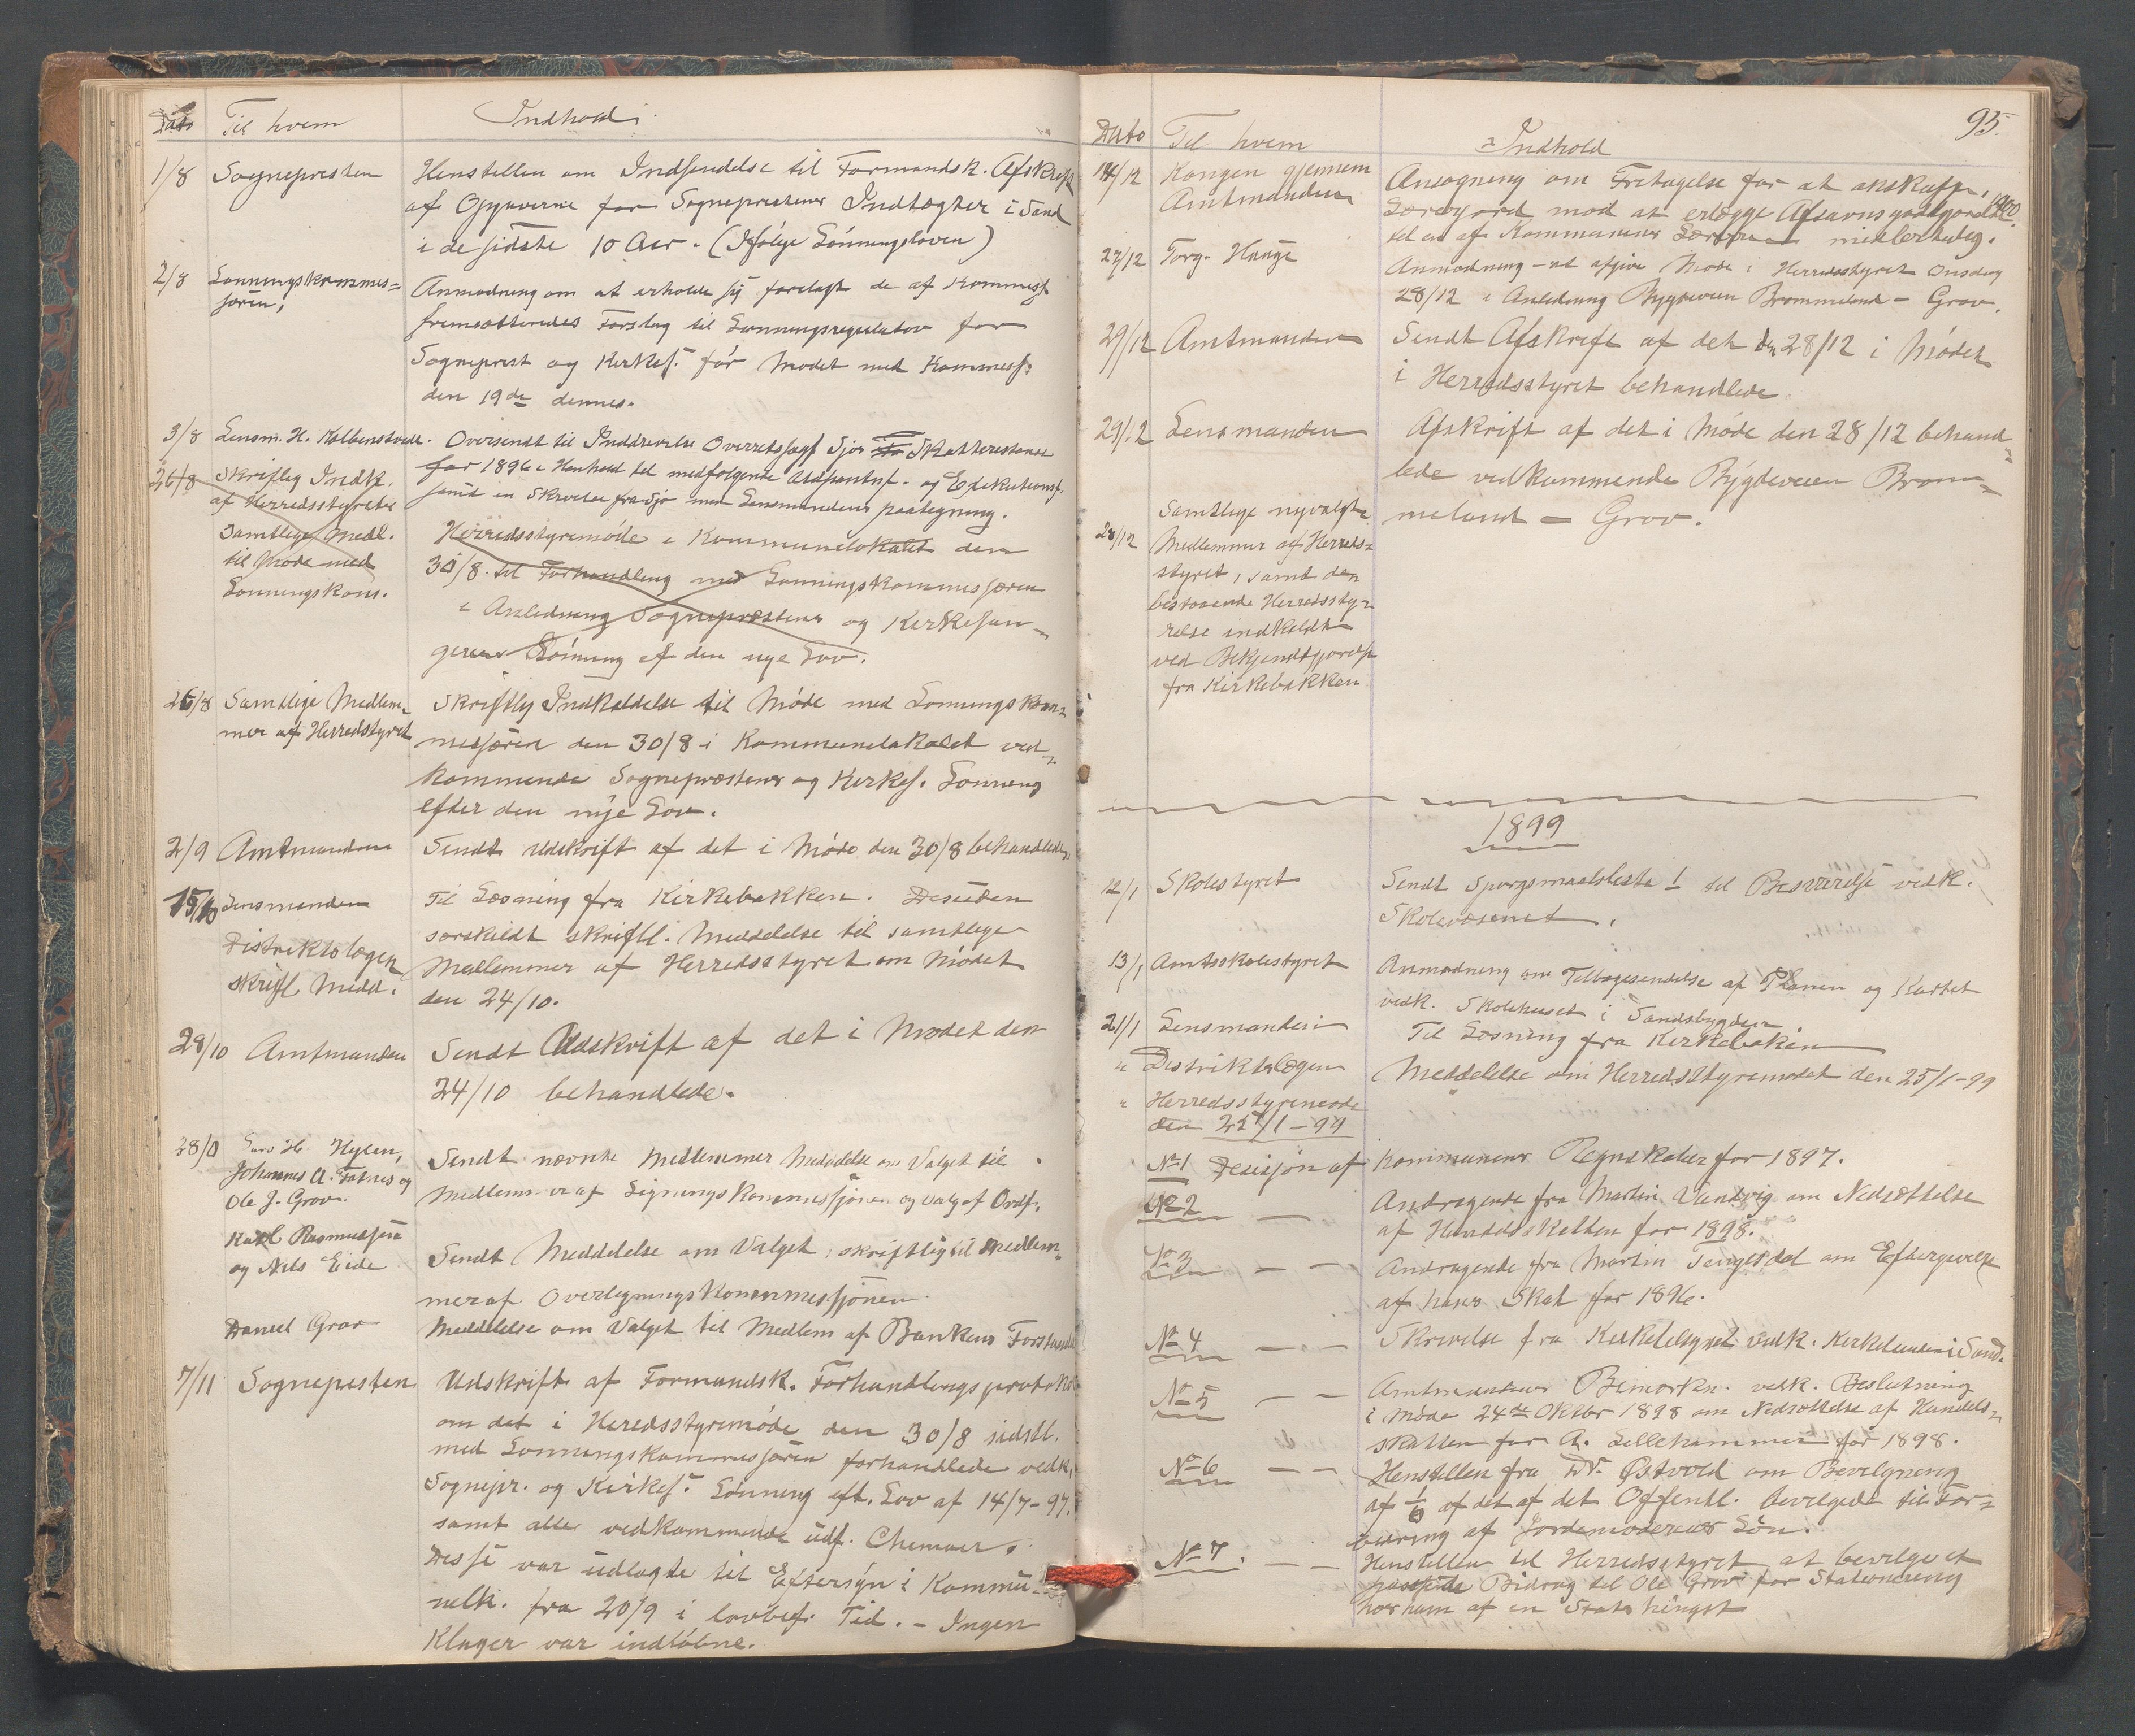 Dato Til hvem Indhold
1/8 Sognepresten Henstillen om Indsendelse til Formandsk. Afskrift
af Opgaverne for Sogneprestens Indtægter i Sand
i de sidste 10 Aar. (Ifølge Lönningsloven)
2/8 Lønningskommis=
særen, Anmodning om at erholde sig forelagt de af Kommiss.
fremsættendes Forslag til Lønningsregulativ for
Sogneprest og Kirkes. før Mødet med Kommiss.
den 19de dennes.
3/8 Lensm. H. Kolbenstvedt. Oversendt til Inddrivelse Overretssagf Sjør Skatterestance
for 1896 i Henhold til medfølgende og Exekutionsf.
samt en Skrivelse fra Sjø med Lensmandens paategning.
26/8 Skriftlig Indk.
af Herredsstyrets
Samtlige Medl.
til Møde med
Lønningskom.
Herredsstyremøde i Kommunelokalet den
30/8. til Forhandling med Lønningskommissæren
i Anledning Sogneprestens og Kirkesan=
gerens Lönning ef den nye Lov.
26/8 Samtlige Medlem=
mer af Herredsstyret Skriftlig Indkaldelse til Møde med Lønningskom=
missæren den 30/8 i Kommunelokalet ved=
kommende Sogneprestens og Kirkes. Lønning
efter den nye Lov.
2/9 Amtmanden Sendt Udskrift af det i Møde den 30/8 behandlede.
15/10 Lensmanden Til Læsning fra Kirkebakken. Desuden
Distriktslægen
skriftl. Medd.
særskildt skriftl. Meddelelse til samtlige
Medlemmer af Herredsstyret om Mødet
den 24/10.
28/10 Amtmanden Sendt Udskrift af det i Mødet den
24/10 behandlede.
28/10 Lars H. Hylen,
Johannes A. Fatnes og
Ole J. Grov.
Sendt nævnte Medlemmer Meddelelse om Valget til
Medlemmer af Ligningskommissjonen og valg af Ordf.
Karl Rasmussen
og Nils Eide Sendt Meddelelse om Valget, skriftlig til Medlem=
mer af Overligningskommissjonen.
Daniel Grov Meddelelse om Valget til Medlem af Bankens Forstander
7/11 Sognepresten Udskrift af Formandsk. Forhandlingsprotokol
om det i Heredsstyremøde den 30/8 sidstl.
med Lønningskommissjæren forhandlede vedk.
Sognepr. og Kirkes. Lönning eft. Lov af 14/7-97.
samt alle vedkommende udf. Chemaer.
Disse var udlagte til Eftersyn i Kommu=
nelk. fra 20/9 i lovbef. Tid. - Ingen
Klager var indløbne.
95.
Dato Til hvem Indhold
14/12 Kongen gjennem
Amtmanden
Ansøgning om Fritagelse for at anskaffe
mod at erlægge
til en af Kommunens midlertidig.
27/12 Torg. Hauge Anmodning - at afgive Møde i Herredsstyret Onsdag
28/12 i Anledning Bygdeveien Brommeland - Grov.
29/12 Amtmanden Sendt Afskrift af det den 28/12 i Mødet
i Herredsstyret behandlede.
29/12 Lensmanden Afskrift af det i Møde den 28/12 behand=
lede vedkommende Bygdeveien Brom=
meland - Grov.
28/12 Samtlige nyvalgte
Medlemmer af Herreds=
styret, samt den
bestaaende Herredssty=
relse indkaldt
ved Bekjendtgjørelse
fra Kirkebakken.
1899
12/1 Skolestyret Sendt Spørgsmaalsliste 1 til Besvarelse vedk.
Skolevæsenet.
13/1 Amtsskolestyret Anmodning om Tilbagesendelse af Planen og Kartet
vedk. Skolehuset i Sandsbygden
21/1 Lensmanden Til Læsning fra Kirkebakken
" Distriktslægen Meddelelse om Herredsstyremødet den 25/1-99
" Herredsstyremøde
den 25/1-99
No 1 Desisjon af Kommunens Regnskaber for 1897.
No 2 — Andragende fra Martin Vandvig om Nedsættelse
af Handelsskatten for 1898.
No 3 — — Andragende fra Martin Tengesdal om Eftergivelse
af hans Skat for 1896.
No 4 — — Skrivelse fra Kirketilsynet vedk. i Sand.
No 5 — — Amtmandens Bemærkn. vedk. Beslutning
i møde 24de Oktbr 1898 om Nedsættelse af Handels=
skatten for A. Lillehammer for 1898.
No 6 — — Henstillen fra Dr. Østvold om Bevilgning
af 1/6 af det af det Offentl. bevilgede til For=
bedring af Jordemoderens Løn.
No 7. — — Henstillen til Herredsstyret at bevilge et
passende Bidrag til Ole Grov for Stationering
hos ham af en Statshingst